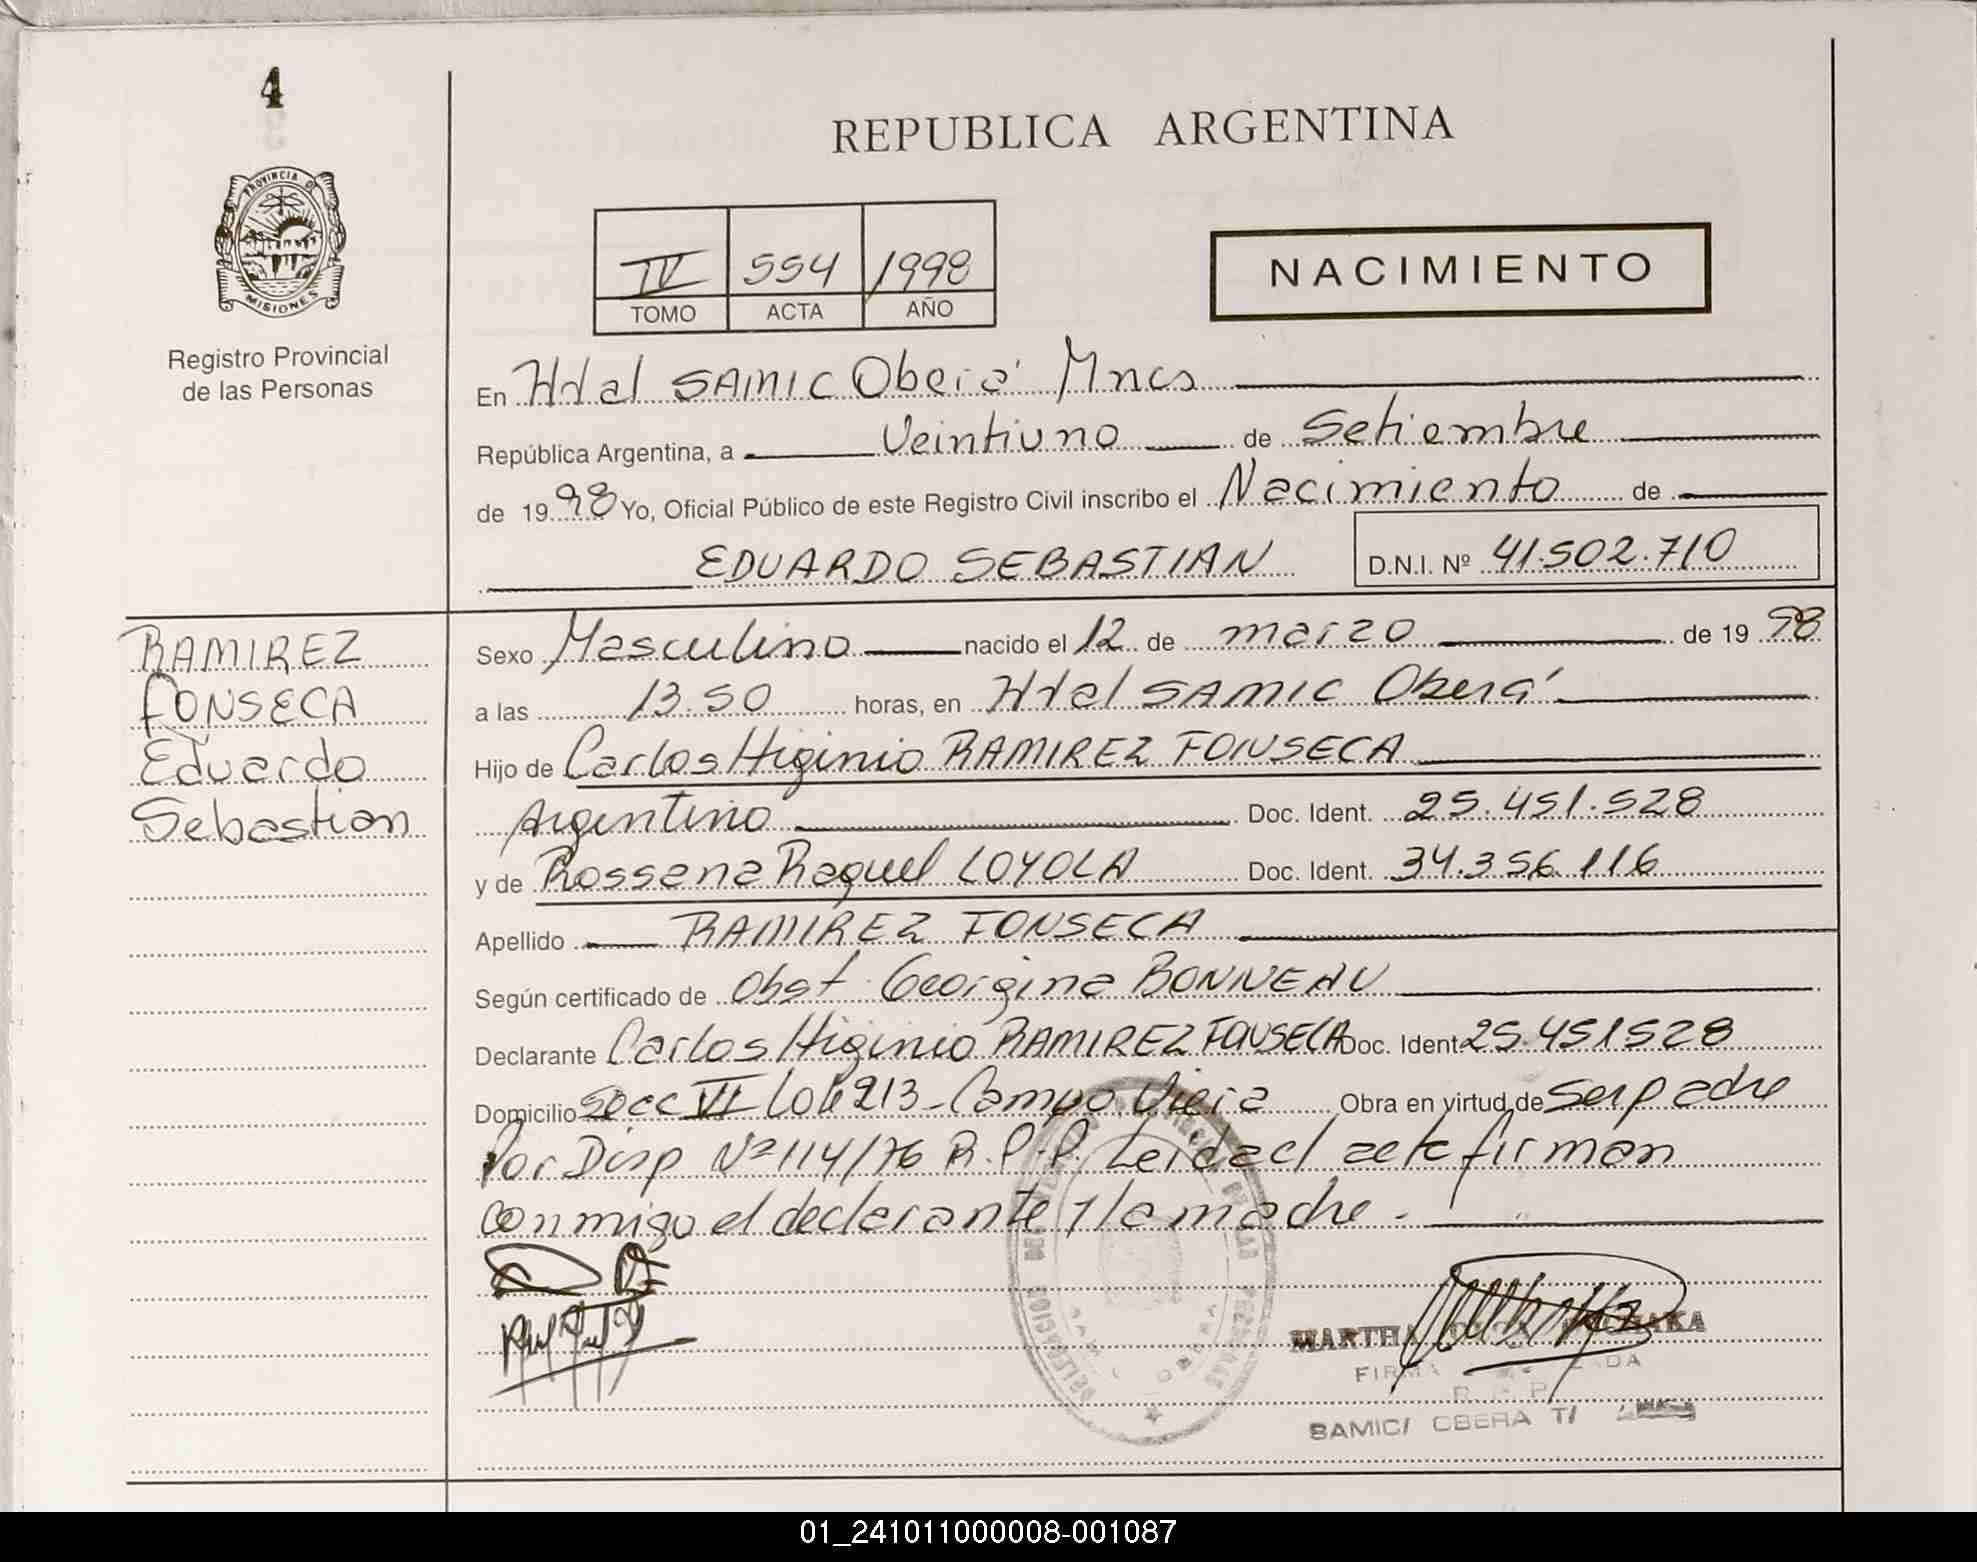 4
PROVINCIA DE
MISIONES
Registro Provincial
de las Personas
REPUBLICA ARGENTINA
IV 554 1998
TOMO ACTA AÑO
NACIMIENTO
En Htal SAMIC Oberá Mnes
República Argentina, a Veintiuno de Setiembre
de 1998 Yo, Oficial Público de este Registro Civil inscribo el Nacimiento de
EDUARDO SEBASTIAN D.N.I. Nº 41.502.710
RAMIREZ
FONSECA
Eduardo
Sebastian
Sexo Masculino nacido el 12 de marzo de 1998
a las 13.50 horas, en Htal SAMIC Oberá
Hijo de Carlos Higinio RAMIREZ FONSECA
Argentino Doc. Ident. 25.451.528
y de Rossana Raquel LOYOLA Doc. Ident. 34.356.116
Apellido RAMIREZ FONSECA
Según certificado de Obst. Georgina BONNEAU
Declarante Carlos Higinio RAMIREZ FONSECA Doc. Ident. 25.451528
Domicilio Secc VI Lote 213 - Campo Viera Obra en virtud de ser padre
Por Disp Nº 114/76 R.P.P. Leida el acta firman
conmigo el declarante y la madre.
MARTHA
R. P.
SAMIC/ OBERA
01_241011000008-001087